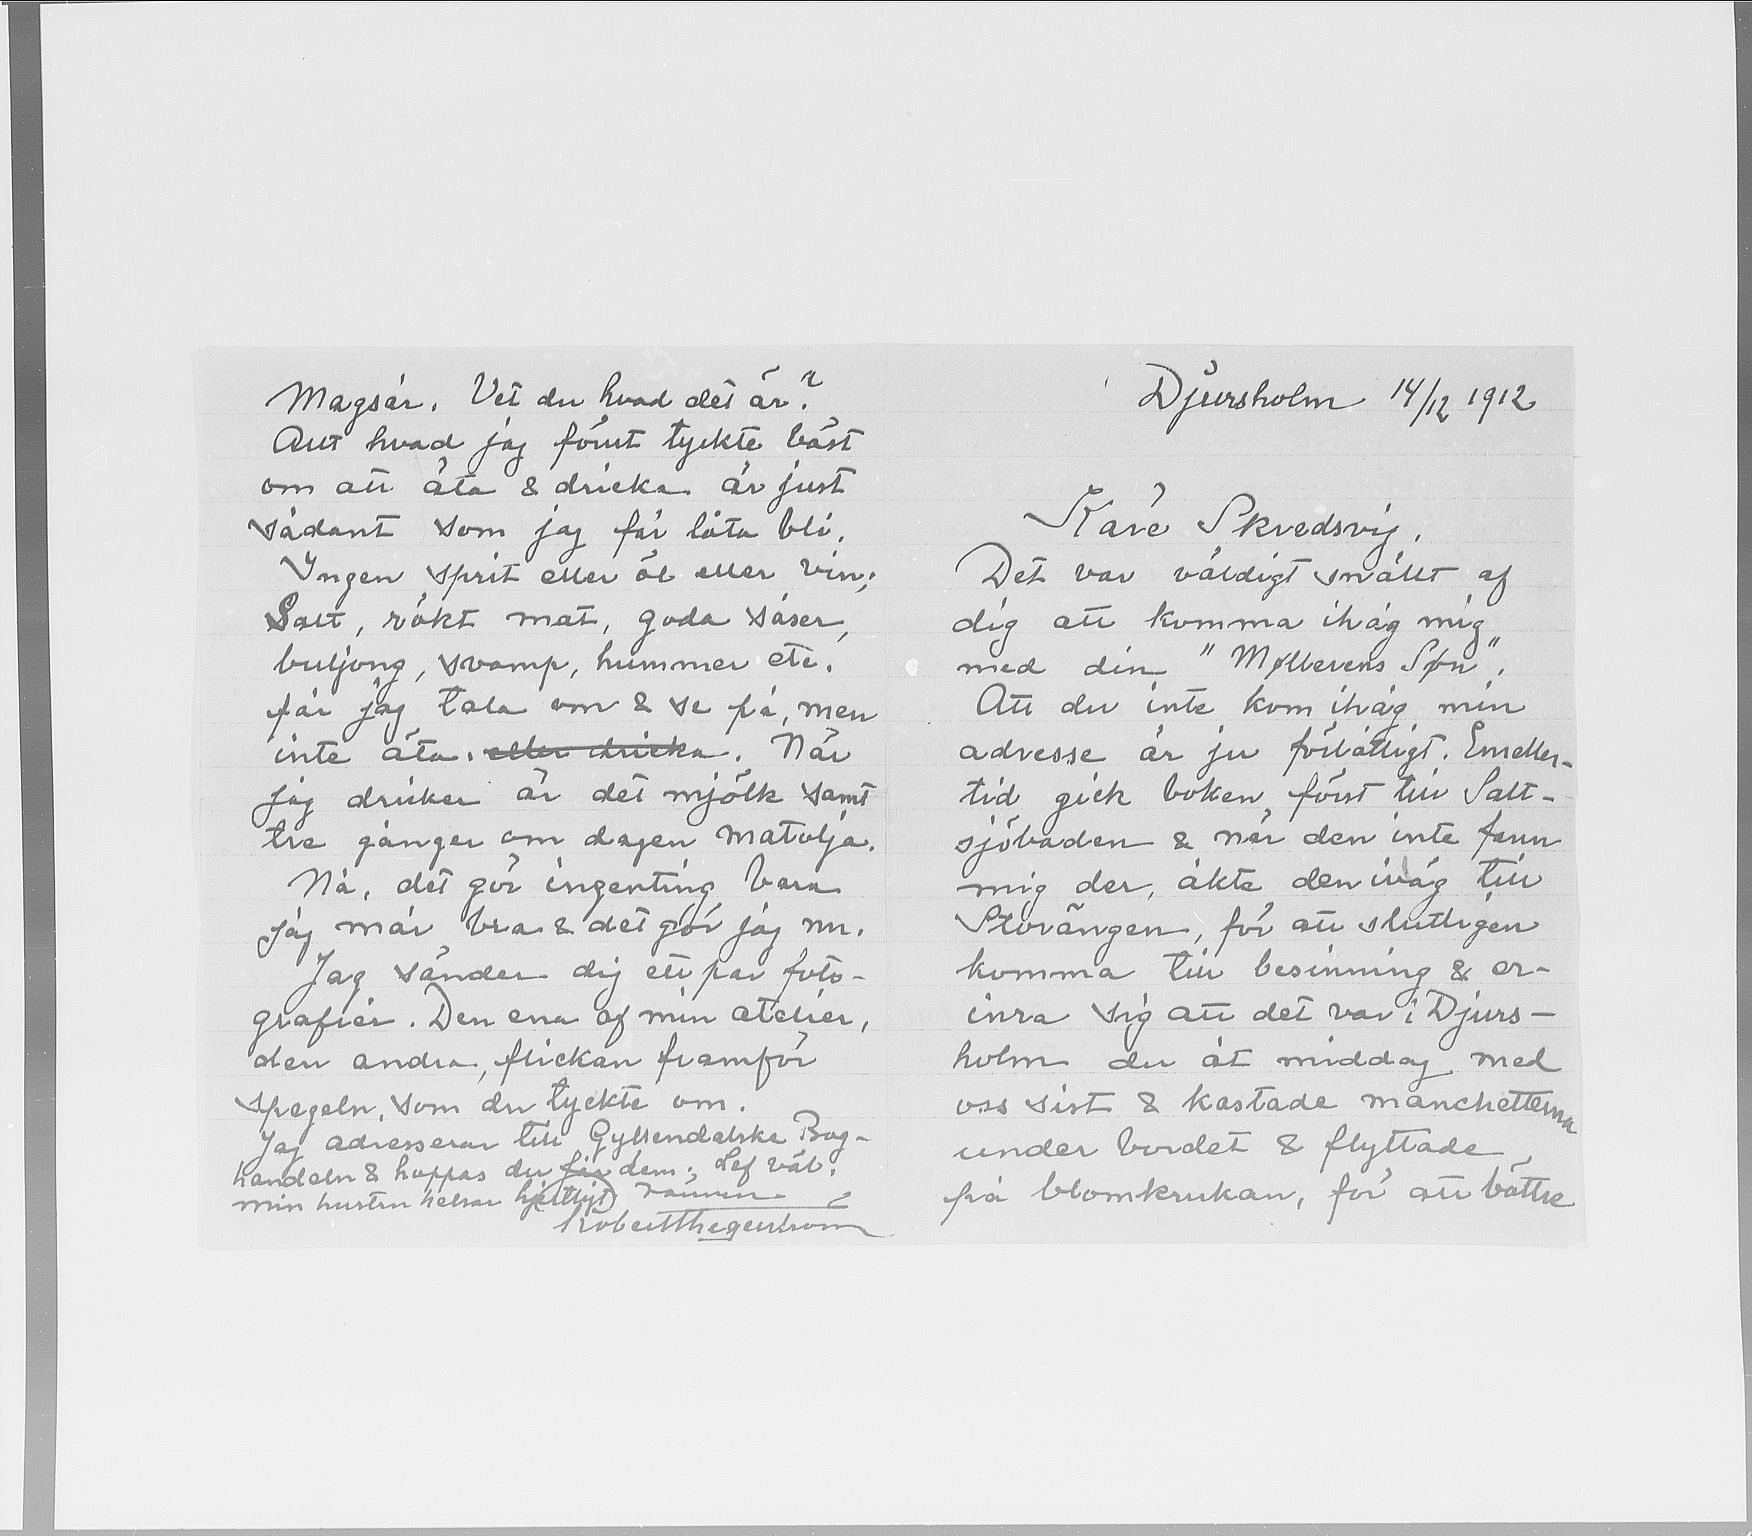 Magsår. Vet du hvad det är?
Allt hvad jag förut tyckte bäst
om att äta & dricka är just
sådant som jag får låta bli.
Ingen sprit eller öl eller vin;
Salt, rökt mat, goda såser,
buljong, svamp, hummer etc.
får jag tala om & se på, men
inte äta. eller dricka. När
jag dricker är det mjölk samt
tre gånger om dagen matolja.
Nå, det gör ingenting bara
jag mår bra & det gör jag nu.
Jag sänder dig ett par foto-
grafier. Den ena af min atelier,
den andra, flickan framför
spegeln, som du tyckte om.
Jag adresserar till Gyldendalske Bog-
handeln & hoppas du får dem. Lef väl.
min hustru helsar hjertligt vännen
Robert Thegerstrom
Djursholm 14/12 1912
Käre Skredsvig.
Det var väldigt snällt af
dig att komma ihåg mig
med din "Møllerens Søn".
Att du inte kom ihåg min
adresse är ju förlåtligt. Emeller-
tid gick boken först till Salt-
sjöbaden & när den inte fann
mig der, åkte den iväg till
Storängen, för att slutligen
komma till besinning & er-
inra sig att det var i Djurs-
holm du åt middag med
oss sist & kastade manchetterna
under bordet & flyttade
på blomkrukan, för att bättre